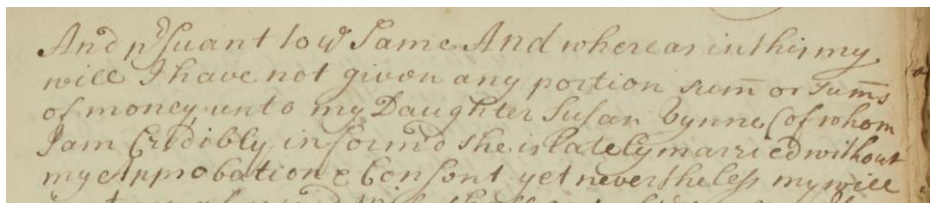 And p'suant to ye Same And whereas in this my
will I have not given any portion sum̄ or Sum̄s
of money unto my Daughter Susan Vynne (of whom
I am Credibly inform'd she is lately married without
my Approbation & Consent yet nevertheless my will